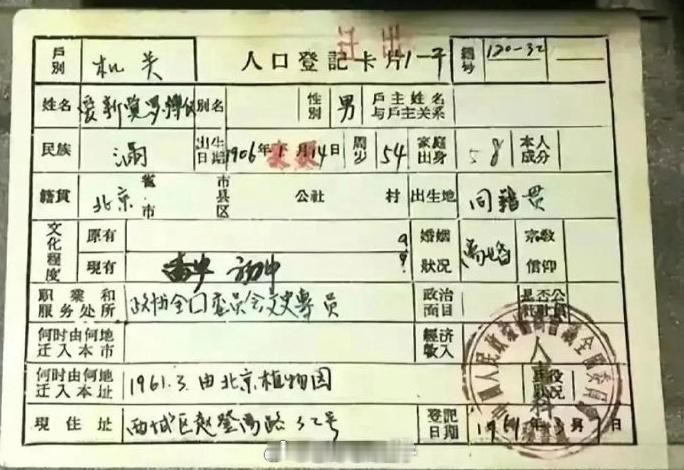 迁出
户别 机关 人口登記卡片1-平 籍号 120-32
姓名 爱新觉罗溥仪 别名 性别 男 戶主姓名与戶主关系
民族 满 出生日期 1906年 月14日 周岁 54 家庭出身 本人成分
籍貫 北京 省市 市县区 公社 村 出生地 同籍贯
文化程度 原有 婚姻狀况 离婚 宗教信仰
现有 高中 初中
职业和服务处所 政协全囗委员会文史專员 政治面目 是否公社社員
何时由何地迁入本市 經济收入
何时由何地迁入本址 1961.3.由北京植物园
现住址 西城区赵登禹路32号 登記日期 1961年3月 日
中國人民政治協商會議全國委員會
人事科